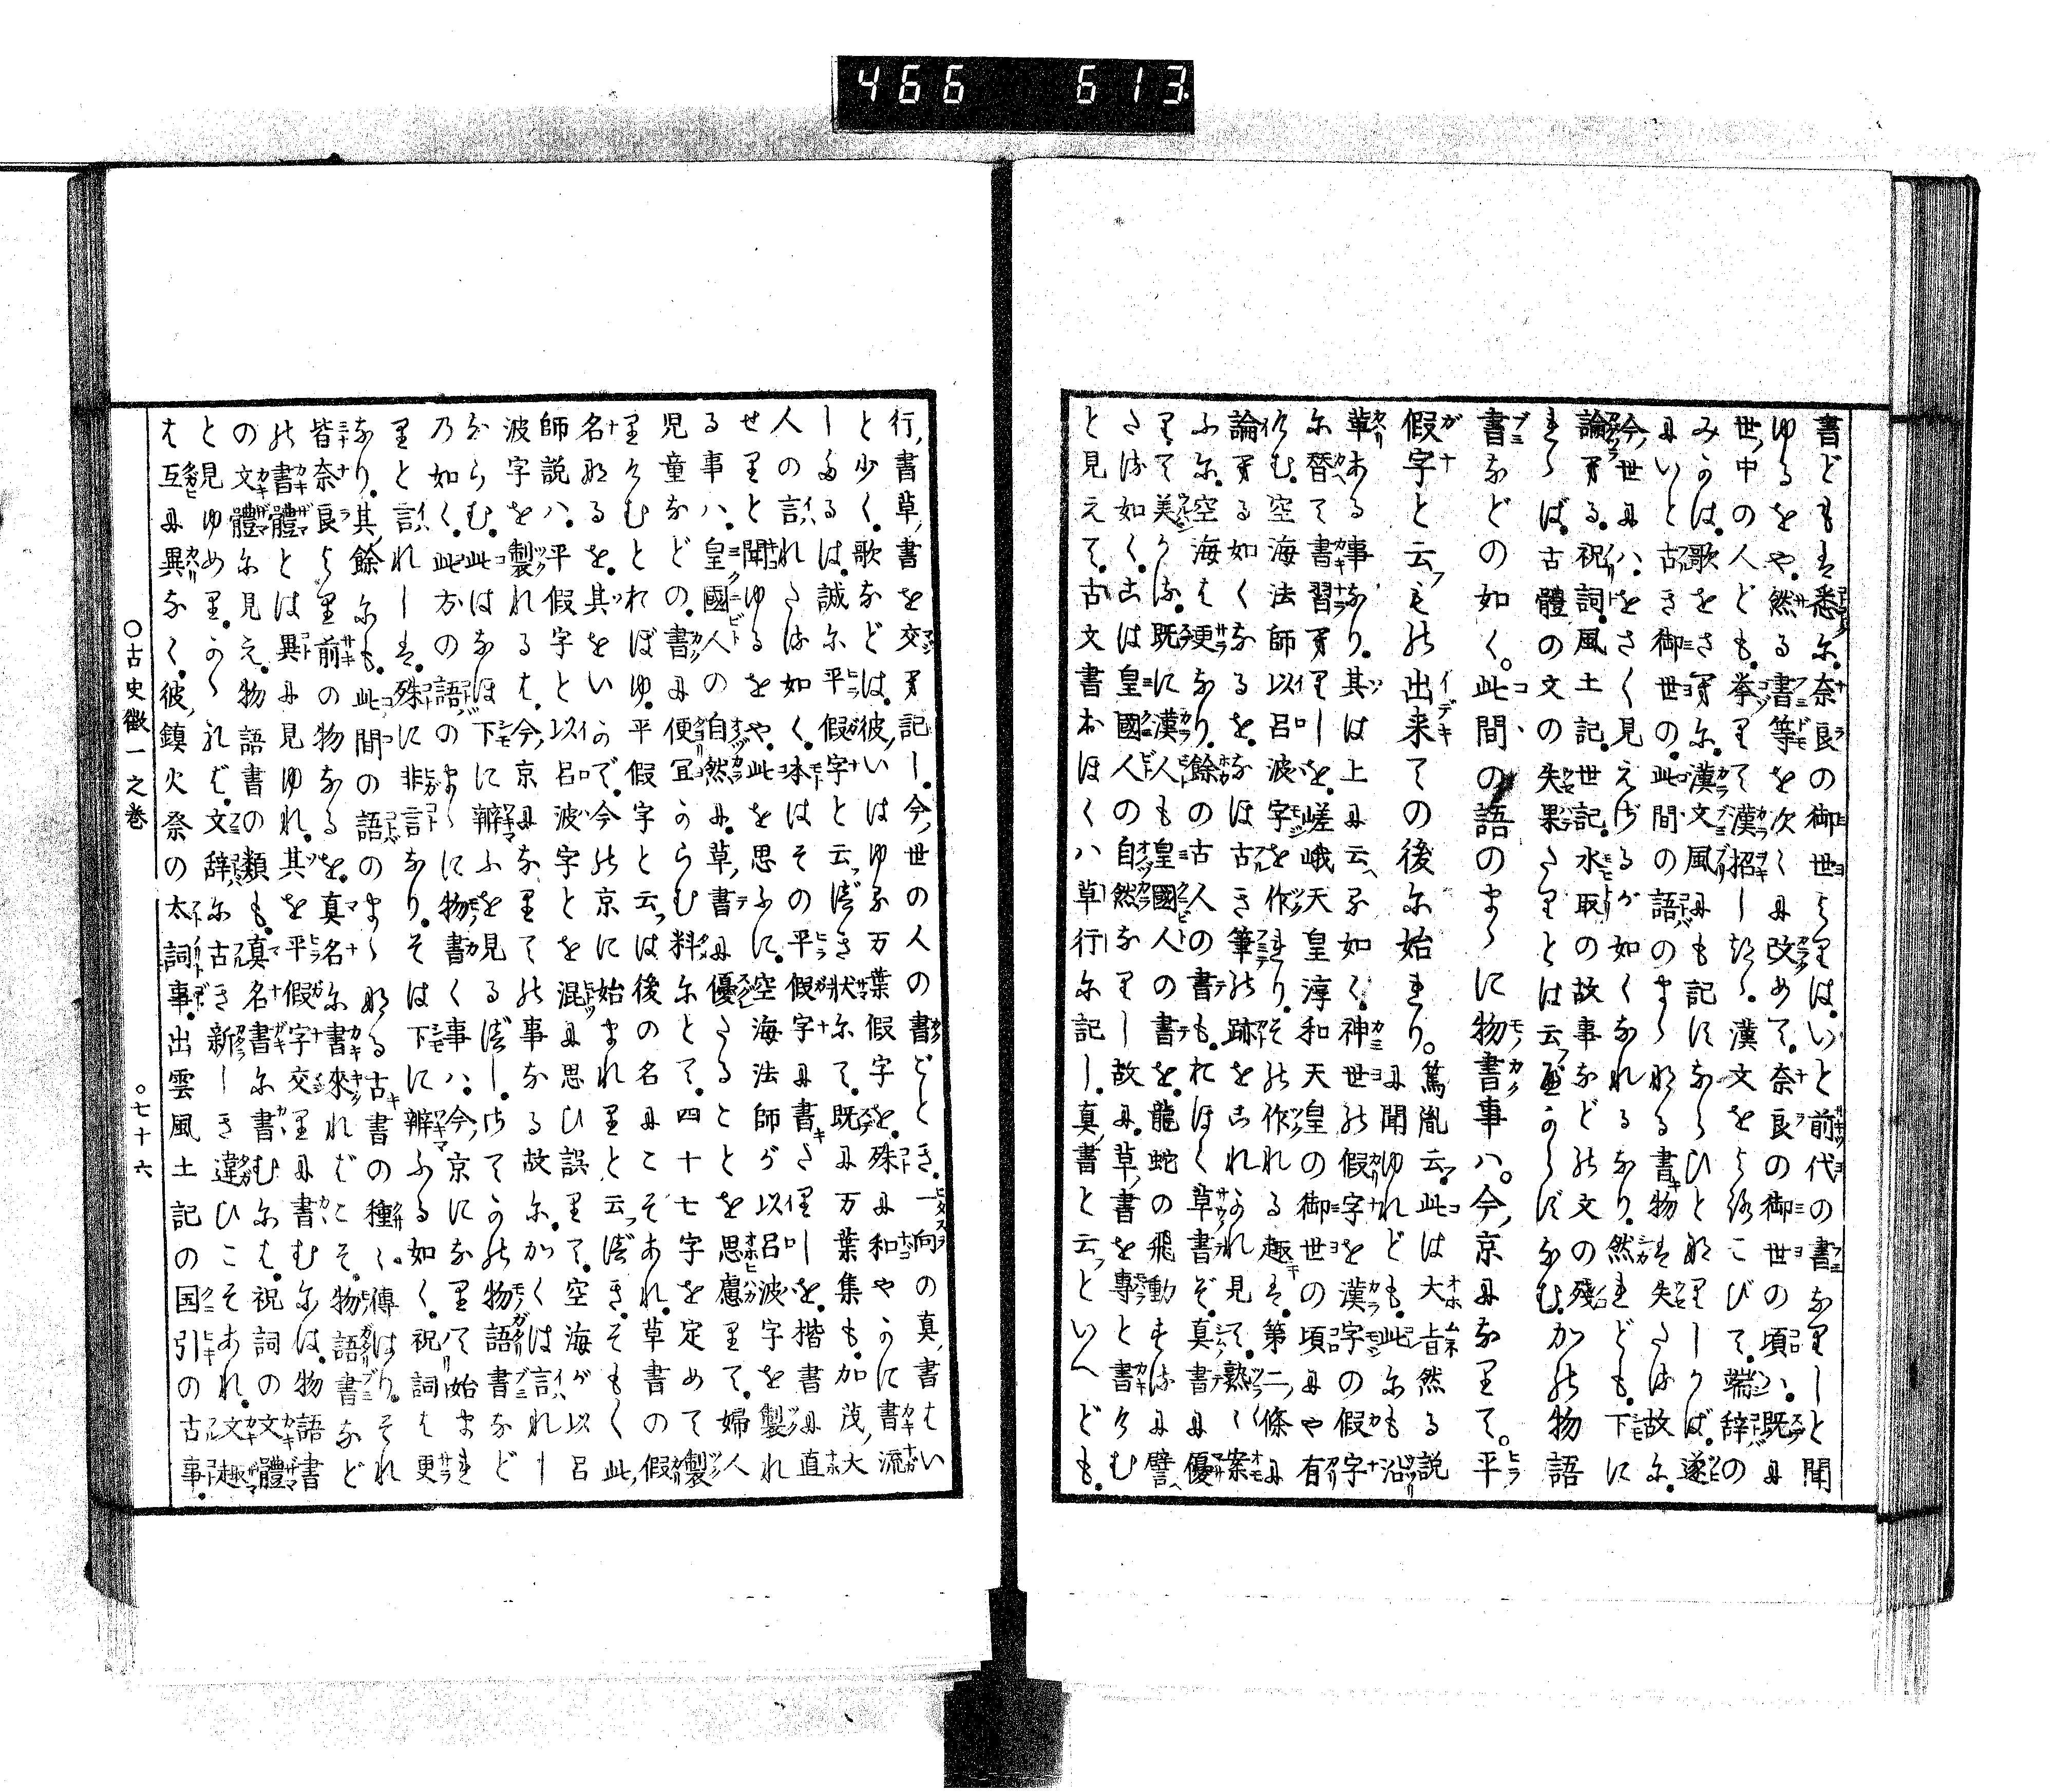 466 613
書どもを悉に奈良の御世よりは。いと前代の書なりしと聞
ゆるをや。然る書等を次々に改めて。奈良の御世の頃ハ。既に
世中の人ども。挙りて漢招し来つゝ。漢文をよろこびて。端辞の
みこそは。歌をさへに。漢文風にも記しならひとなりしかば。遂
にいと古き御世の。此間の語のまゝなる書物を失たる故に。
今世にハ。をさく見えざるが如くなれるなり。然れども。下に
論へる。祝詞。風土記。世記。水取の故事などの文の残
れゝば。古體の文の失果たりとは云べからずなむ。かの物語
書などの如く。此間の語のまゝに物書事ハ。今京になりて。平
假字と云もの出来ての後に始れり。篤胤云。此は大旨然る説
に聞ゆれども。此にも沿
革ある事なり。其は上に云る如く。神世の假字を漢字の假字
に替て書習へりしを。嵯峨天皇淳和天皇の御世の頃にや有
けむ。空海法師以呂波字を作れり。その作れる趣を。第二條に
論へる如くなるを。なほ古き筆の跡をこれかれ見て。熟く案
ふに。空海は更なり。餘の古人の書も。おほく草書ぞ。真書に優
りて美かる。既に漢人も皇國人の書を。龍蛇の飛動するに譬
たる如く。こは皇國人の自然なりし故に。草書を專と書けむ
と見えて。古文書おほくハ草行に記し。真書と云といへども。
行書草書を交へ記し。今世の人の書どとき。一向の真書はい
と少く。歌などは。彼いはゆる万葉假字を。殊に和やかに書流
したるは。誠に平假字と云べき状にて。既に万葉集も。加茂大
人の言れたる如く。本はその平假字に書たりしを。楷書に直
せりと聞ゆるをや。此を思ふに。空海法師が以呂波字を製れ
る事ハ。皇國人の自然に。草書に優たることを思慮りて。婦人
児童などの。書に便宜からむ料にとて。四十七字を定めて製
りけむとおぼゆ。平假字と云は後の名にこそあれ。草書の假
名なるを。其をいかで。今の京に始まれりと云べき。そもく此
師説ハ。平假字と以呂波字とを混に思ひ誤りて。空海が以呂
波字を製れるは。今京になりての事なる故に。かくは言れし
ならむ。此はなほ下に辨ふを見るべし。さてかの物語書など
乃如く。此方の語のまゝに物書く事ハ。今京になりて始まれ
りと言れしを。殊に非言なり。そは下に辨ふる如く。祝詞は更
なり。其餘にも。此間の語のまゝなる古書の種々。傳はり。それ
皆奈良より前の物なるを。真名に書來れゞこそ。物語書など
の書體とは異に見ゆれ。其を平假字交りに書むには。物語書
の文體に見え。物語書の類も。真名書に書むには。祝詞の文體
と見ゆめり。かゝれば。文辞に古き新しき違ひこそあれ。文趣
は互に異なく。彼鎮火祭の太詞事。出雲風土記の国引の古事。
〇古史徴一之巻
〇七十六